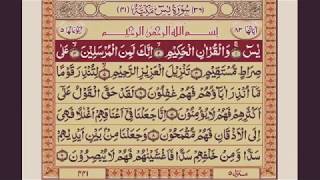 اٰیَاتُهَا ٨٣ (٣٦) سُوْرَةُ یٰسٓ مَكِّیَّةٌ (٤١) رُكُوْعَاتُهَا ٥
بِسْمِ اللّٰهِ الرَّحْمٰنِ الرَّحِیْمِ
یٰسٓ ۚ وَالْقُرْاٰنِ الْحَكِیْمِ ۙ اِنَّكَ لَمِنَ الْمُرْسَلِیْنَ ۙ عَلٰی
صِرَاطٍ مُّسْتَقِیْمٍ ؕ تَنْزِیْلَ الْعَزِیْزِ الرَّحِیْمِ ۙ لِتُنْذِرَ قَوْمًا
مَّاۤ اُنْذِرَ اٰبَآؤُهُمْ فَهُمْ غٰفِلُوْنَ لَقَدْ حَقَّ الْقَوْلُ عَلٰۤی
اَكْثَرِهِمْ فَهُمْ لَا یُؤْمِنُوْنَ اِنَّا جَعَلْنَا فِیْۤ اَعْنَاقِهِمْ اَغْلٰلًا فَهِیَ
اِلَی الْاَذْقَانِ فَهُمْ مُّقْمَحُوْنَ وَجَعَلْنَا مِنْۢ بَیْنِ اَیْدِیْهِمْ
سَدًّا وَّمِنْ خَلْفِهِمْ سَدًّا فَاَغْشَیْنٰهُمْ فَهُمْ لَا یُبْصِرُوْنَ
٤٤١ منزل ٥